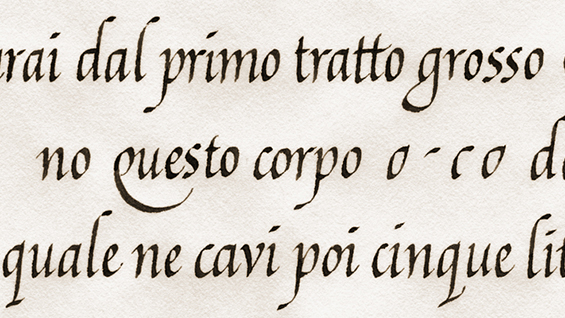 rai dal primo tratto grosso
no questo corpo o - c o d
quale ne cavi poi cinque lit